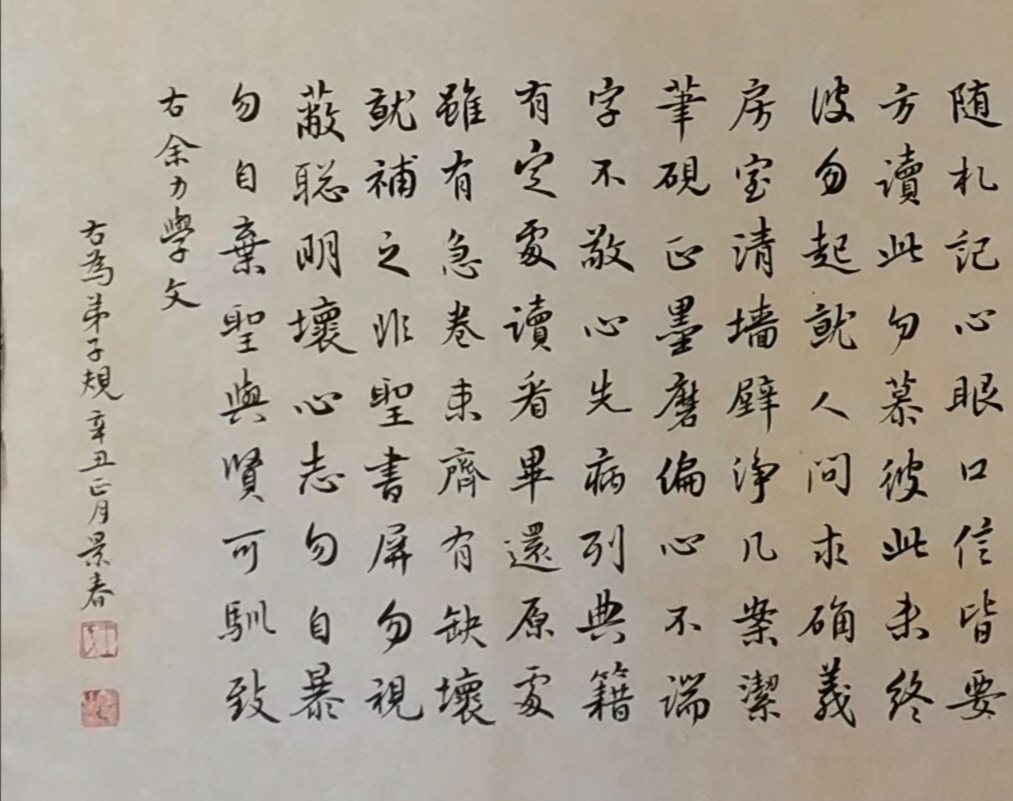 随札記心眼口信皆要
方讀此勿慕彼此未終
彼勿起就人問求确義
房室清墙壁净几案潔
筆硯正墨磨偏心不端
字不敬心先病列典籍
有定處讀看畢還原處
雖有急卷束齊有缺壞
就補之非聖書屏勿視
蔽聪明壞心志勿自暴
勿自棄聖與賢可馴致
右余力學文
右為弟子規辛丑正月景春